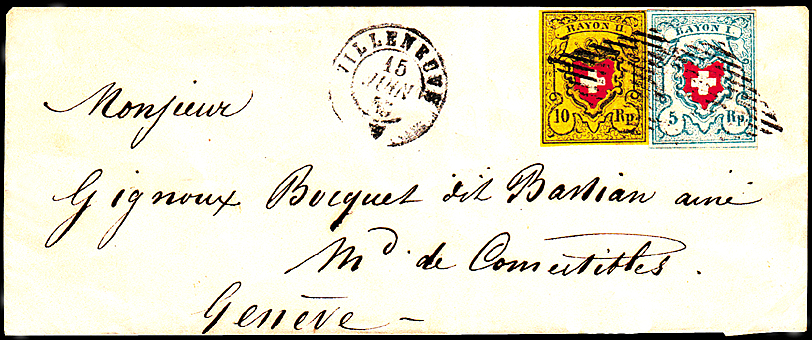 VILLENEUVE
15
JUIN
RAYON II
10 Rp.
RAYON I.
5 Rp.
Monsieur
Gignoux Bocquet dit Bastian ainé
Md. de Comestibles.
Genève –